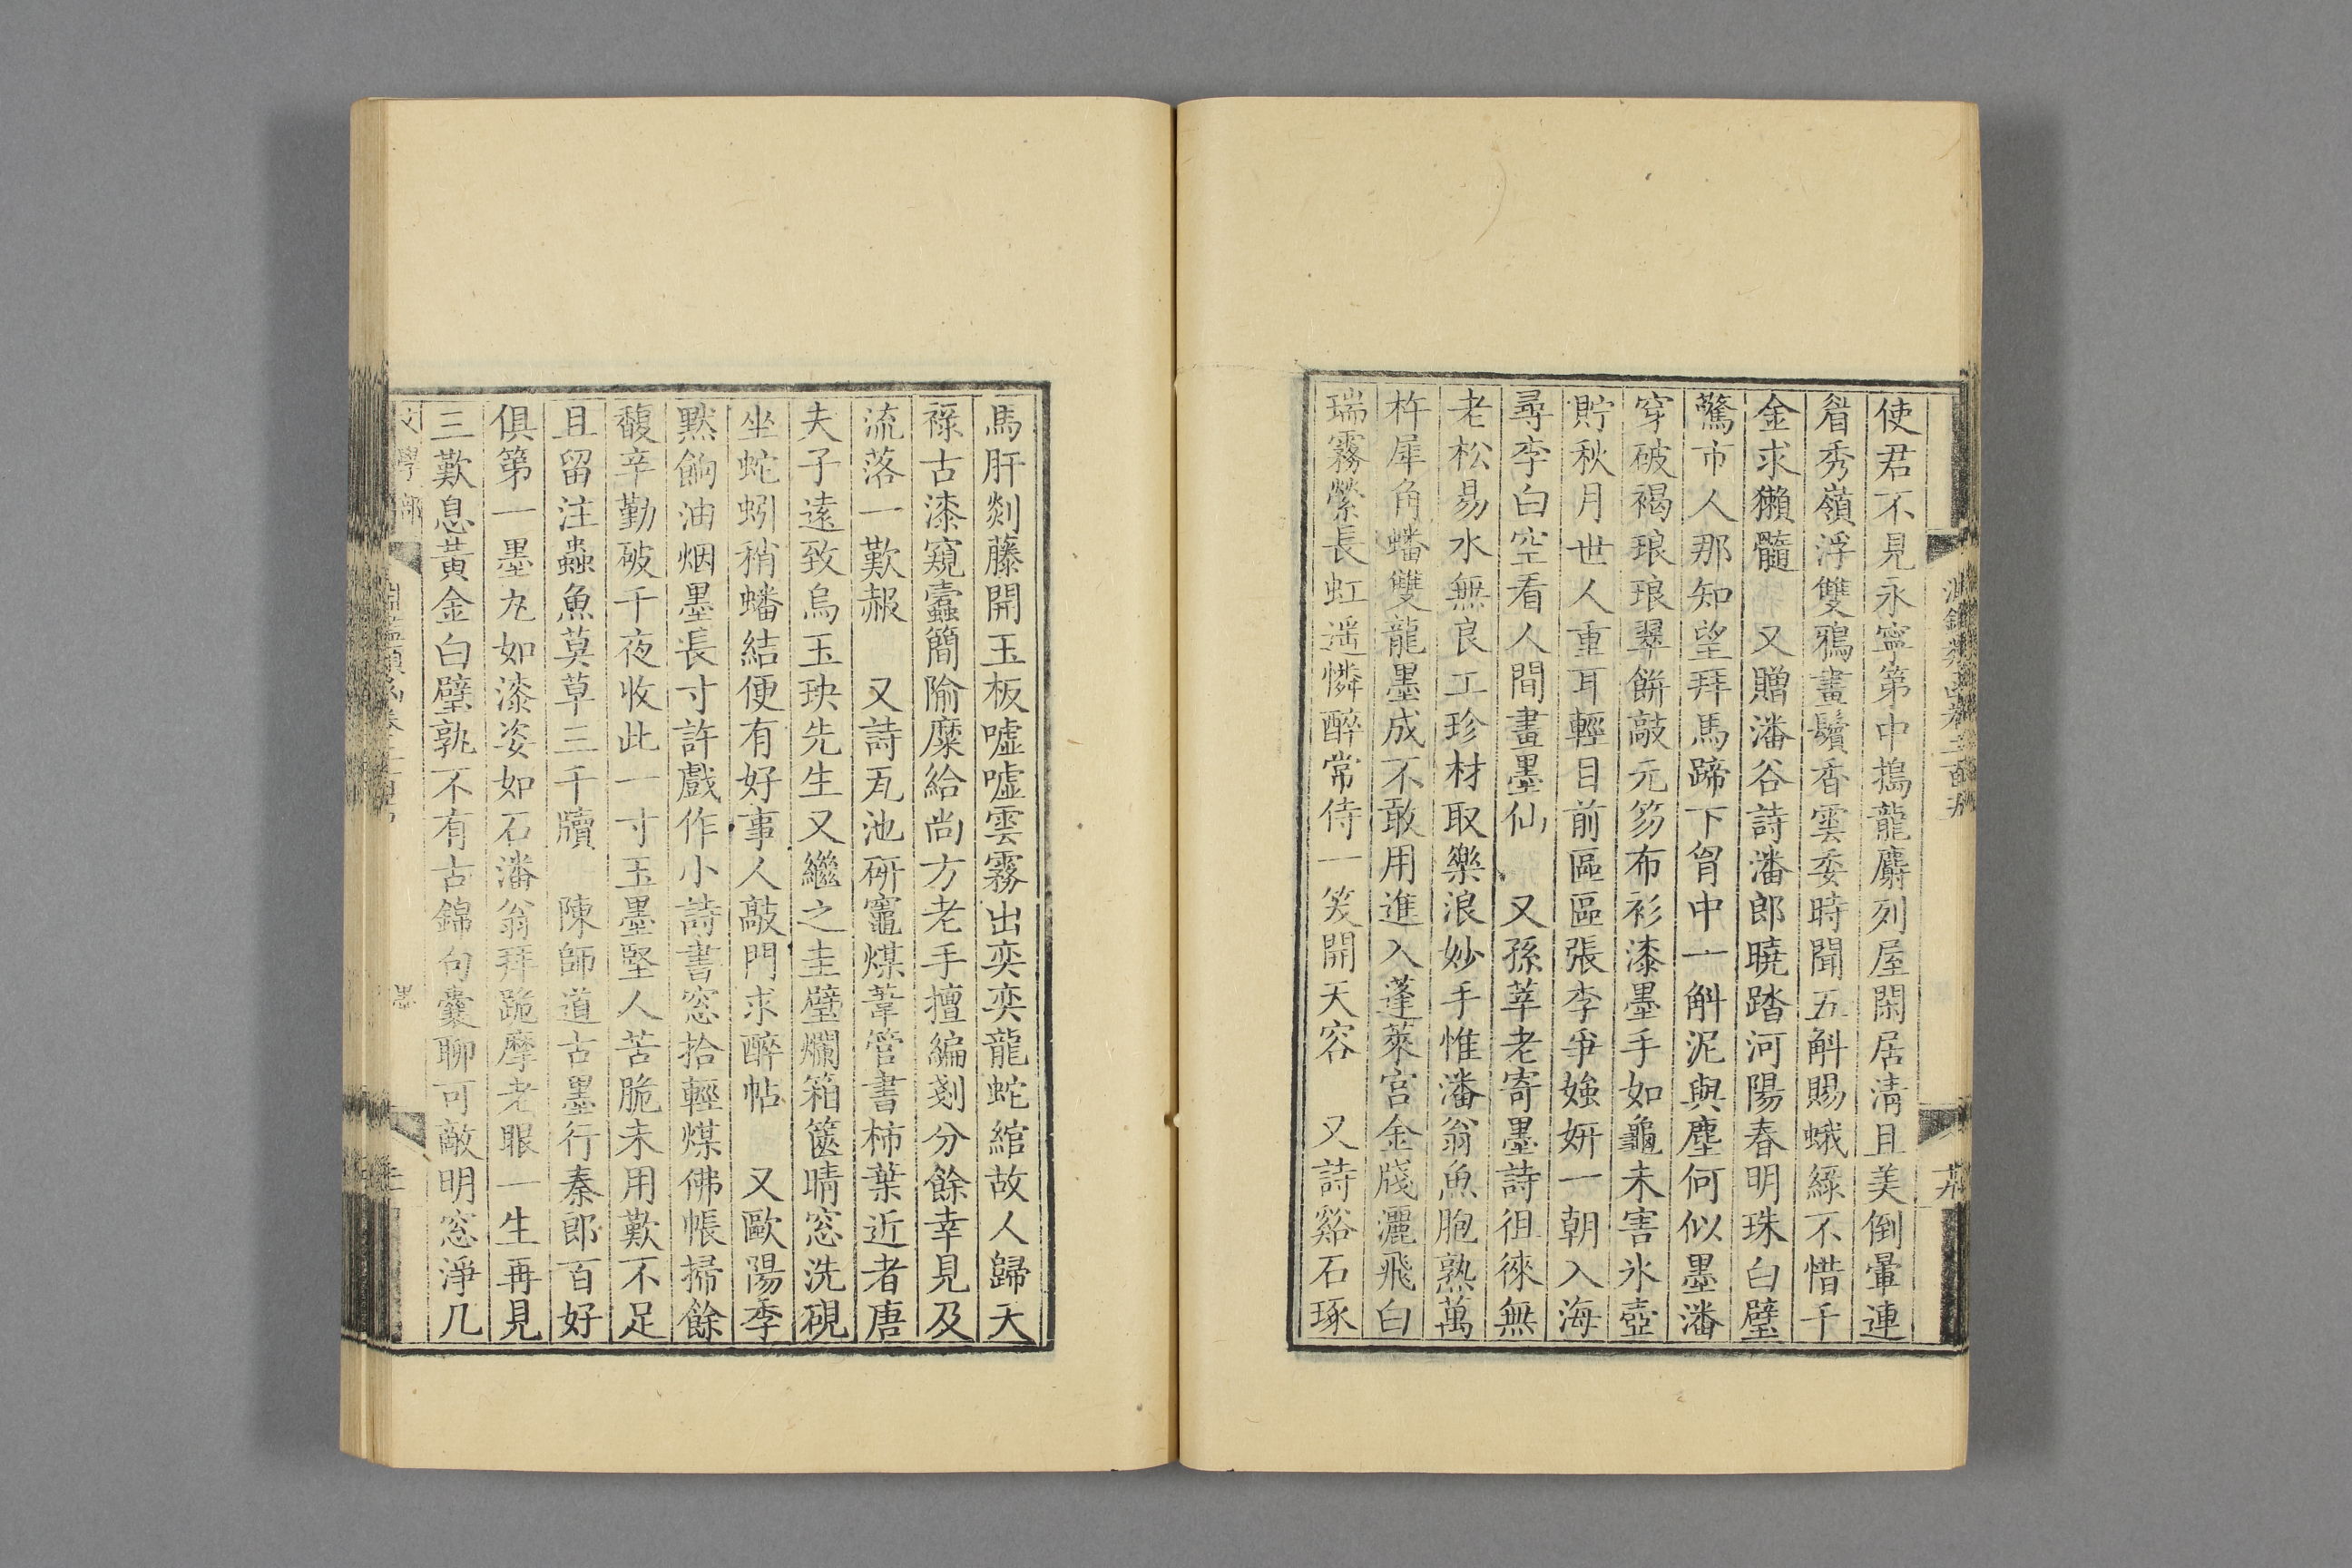 使君不見永寧第中搗龍麝列屋閑居清且美倒暈連
眉秀嶺浮雙鴉畫鬢香雲委時聞五斛賜蛾綠不惜千
金求獺髓　又贈潘谷詩潘郎曉踏河陽春明珠白璧
驚市人那知望拜馬蹄下胷中一斛泥與塵何似墨潘
穿破褐琅琅翠餅敲元笏布衫漆墨手如龜未害氷壺
貯秋月世人重耳輕目前區區張李爭媸妍一朝入海
尋李白空看人間畫墨仙　又孫莘老寄墨詩徂徠無
老松易水無良工珍材取樂浪妙手惟潘翁魚胞熟萬
杵犀角蟠雙龍墨成不敢用進入蓬萊宮金牋灑飛白
瑞霧縈長虹遥憐醉常侍一笑開天容　又詩谿石琢
馬肝剡藤開玉板嘘嘘雲霧出奕奕龍蛇綰故人歸天
祿古漆窺蠧簡隃糜給尚方老手擅編剗分餘幸見及
流落一歎赧　又詩瓦池研竈煤葦管書柿葉近者唐
夫子逺致烏玉玦先生又繼之圭璧爛箱篋晴窓洗硯
坐蛇蚓稍蟠結便有好事人敲門求醉帖　又歐陽季
黙餉油烟墨長寸許戲作小詩書窓拾輕煤佛帳掃餘
馥辛勤破千夜收此一寸玉墨堅人苦脆未用歎不足
且留注蟲魚莫草三千牘　陳師道古墨行秦郎百好
俱第一墨丸如漆姿如石潘翁拜跪摩老眼一生再見
三歎息黃金白璧孰不有古錦句囊聊可敵明窓淨几
文學部
墨